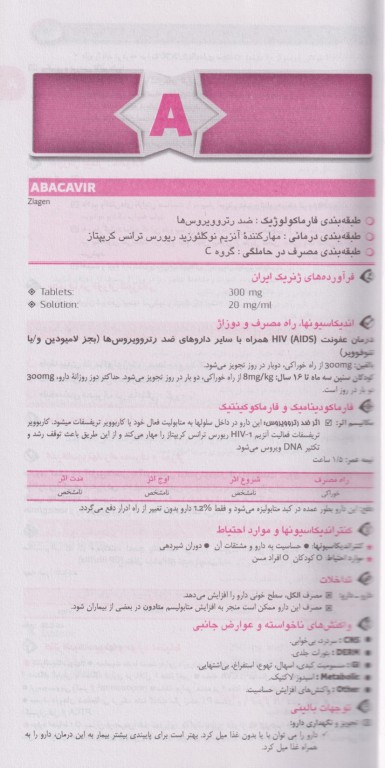 A
ABACAVIR
Ziagen
طبقه‌بندی فارماکولوژیک : ضد رتروویروس‌ها
طبقه‌بندی درمانی : مهارکنندهٔ آنزیم نوکلئوزید ریورس ترانس کریپتاز
طبقه‌بندی مصرف در حاملگی : گروه C
فرآورده‌های ژنریک ایران
Tablets: 300 mg
Solution: 20 mg/ml
اندیکاسیونها، راه مصرف و دوزاژ
درمان عفونت HIV (AIDS) همراه با سایر داروهای ضد رتروویروس‌ها (بجز لامیودین و/یا
تنوفوویر)
بالغین: 300mg از راه خوراکی، دوبار در روز تجویز می‌شود.
کودکان سنین سه ماه تا ۱۶ سال: 8mg/kg از راه خوراکی، دو بار در روز تجویز می‌شود. حداکثر دوز روزانهٔ دارو، 300mg
دو بار در روز است.
فارماکودینامیک و فارماکوکینتیک
مکانیسم اثر: اثر ضد رتروویروس: این دارو در داخل سلولها به متابولیت فعال خود یا کاربوویر تریفسفات میشود. کاربوویر
تریفسفات فعالیت آنزیم HIV-1 ریورس ترانس کریپتاز را مهار می‌کند و از این طریق باعث توقف رشد و
تکثیر DNA ویروس می‌شود.
نیمه عمر: ۱/۵ ساعت
راه مصرف شروع اثر اوج اثر مدت اثر
خوراکی نامشخص نامشخص نامشخص
دفع: این دارو بطور عمده در کبد متابولیزه می‌شود و فقط 1.2% دارو بدون تغییر از راه ادرار دفع می‌گردد.
کنتراندیکاسیونها و موارد احتیاط
کنتراندیکاسیونها: حساسیت به دارو و مشتقات آن ● دوران شیردهی
موارد احتیاط: کودکان افراد مسن
تداخلات
دارو-دارو: مصرف الکل، سطح خونی دارو را افزایش می‌دهد.
مصرف این دارو ممکن است منجر به افزایش متابولیسم متادون در بعضی از بیماران شود.
واکنش‌های ناخواسته و عوارض جانبی
CNS: سردرد، بی‌خوابی.
DERM: بثورات جلدی.
GI: مسمومیت کبدی، اسهال، تهوع، استفراغ، بی‌اشتهایی.
Metabolic: اسیدوز لاکتیک.
Other: واکنش‌های افزایش حساسیت.
توجهات بالینی
تجویز و نگهداری دارو:
✓ دارو را می توان با یا بدون غذا میل کرد. بهتر است برای پایبندی بیشتر بیمار به این درمان، دارو را به
همراه غذا میل کرد.